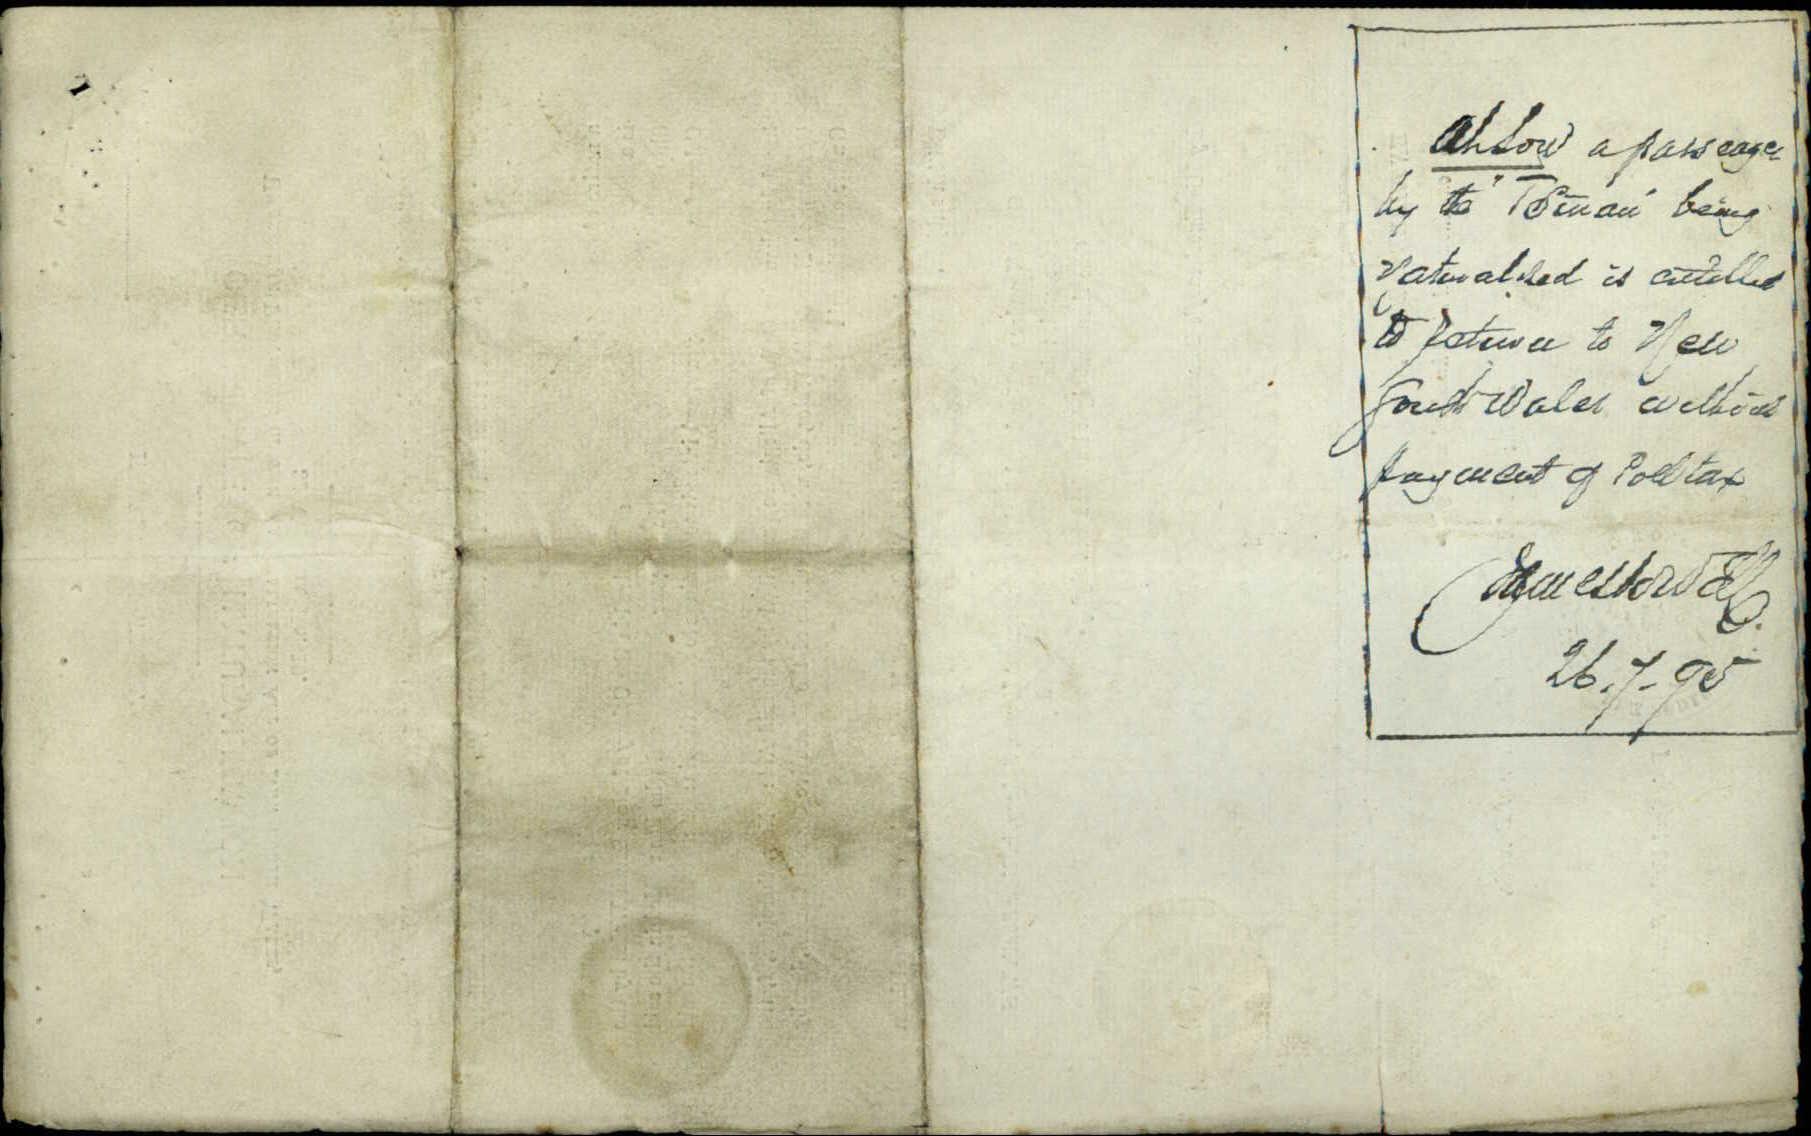 Ah Low a passenger
by the "Tsinan" being
Naturalised is entitled
to return to New
South Wales without
payment of Poll tax
26.7.95